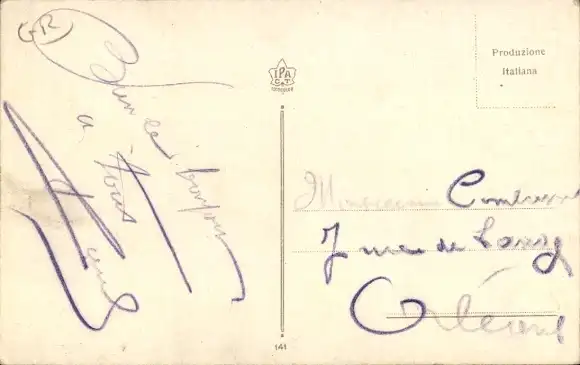 GR
Bien le bonjour
a tous
Produzione
Italiana
IPA
CT
Monsieur
7 rue de
Orléans
141